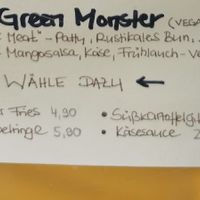 Green Monster (VEGA
Meat"-Patty, Rustikales Bun,
- Mangosalsa, Käse, Frühlauch-Ve
WÄHLE DAZU ←
Fries 4,90 • Süßkartoffelgit
elringe 5,90 • Käsesauce 2